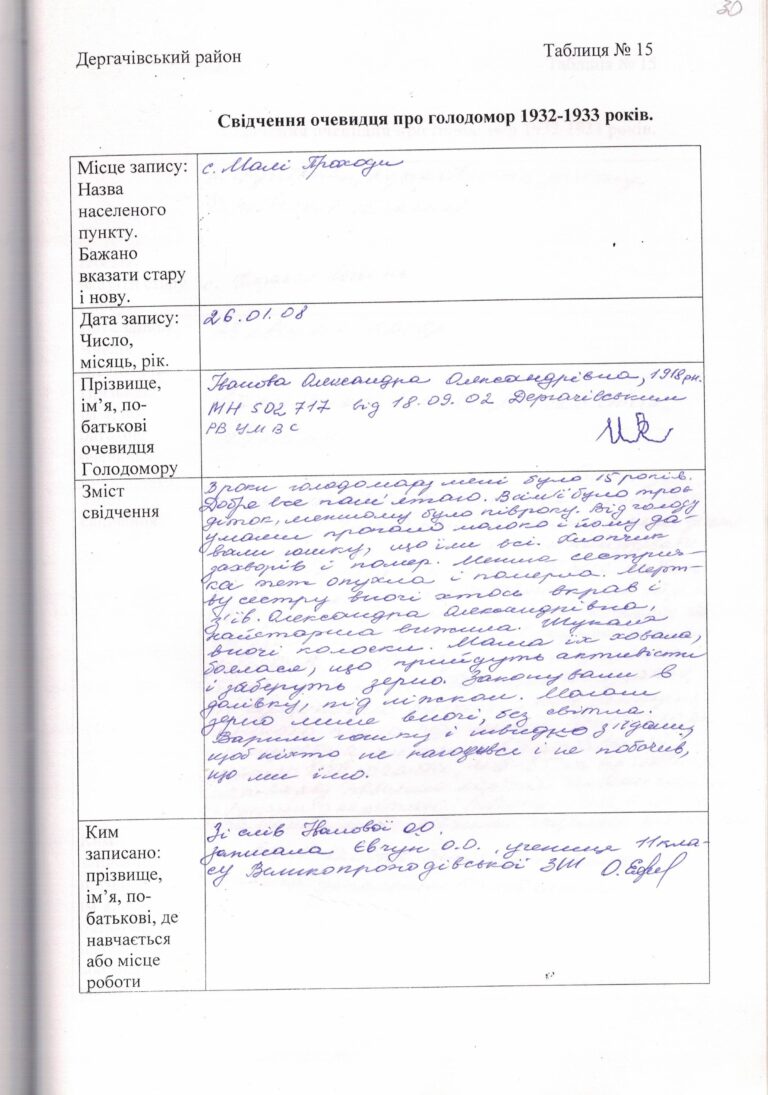 30
Дергачівський район
Таблиця № 15
Свідчення очевидця про голодомор 1932-1933 років.
Місце запису:
Назва
населеного
пункту.
Бажано
вказати стару
і нову.
с. Малі Проходи
Дата запису:
Число,
місяць, рік.
26.01.08
Прізвище,
ім’я, по-
батькові
очевидця
Голодомору
Іванова Олександра Олександрівна, 1918 рн.
МН 502 717 від 18.09.02 Дергачівським
РВ УМВС
Зміст
свідчення
В роки голодомору мені було 15 років.
Добре все пам'ятаю. В сім'ї було троє
діток, меншому було півроку. Від голоду
у мами пропало молоко і йому да-
вали юшку, що їли всі. Хлопчик
захворів і помер. Менша сестрич-
ка теж опухла і померла. Мерт-
ву сестру вночі хтось вкрав і
з'їв. Олександра Олександрівна,
найстарша вижила. Шукала
вночі колоски. Мама їх ховала,
боялася, що прийдуть активісти
і заберуть зерно. Закопували в
долівку, під ліжком. Мололи
зерно лише вночі, без світла.
Варили юшку і швидко з'їдали,
щоб ніхто не нагодився і не побачив,
що ми їмо.
Ким
записано:
прізвище,
ім’я, по-
батькові, де
навчається
або місце
роботи
Зі слів Іванової О.О.
записала Євчун О.О., учениця 11 кла-
су Великопроходівської ЗШ